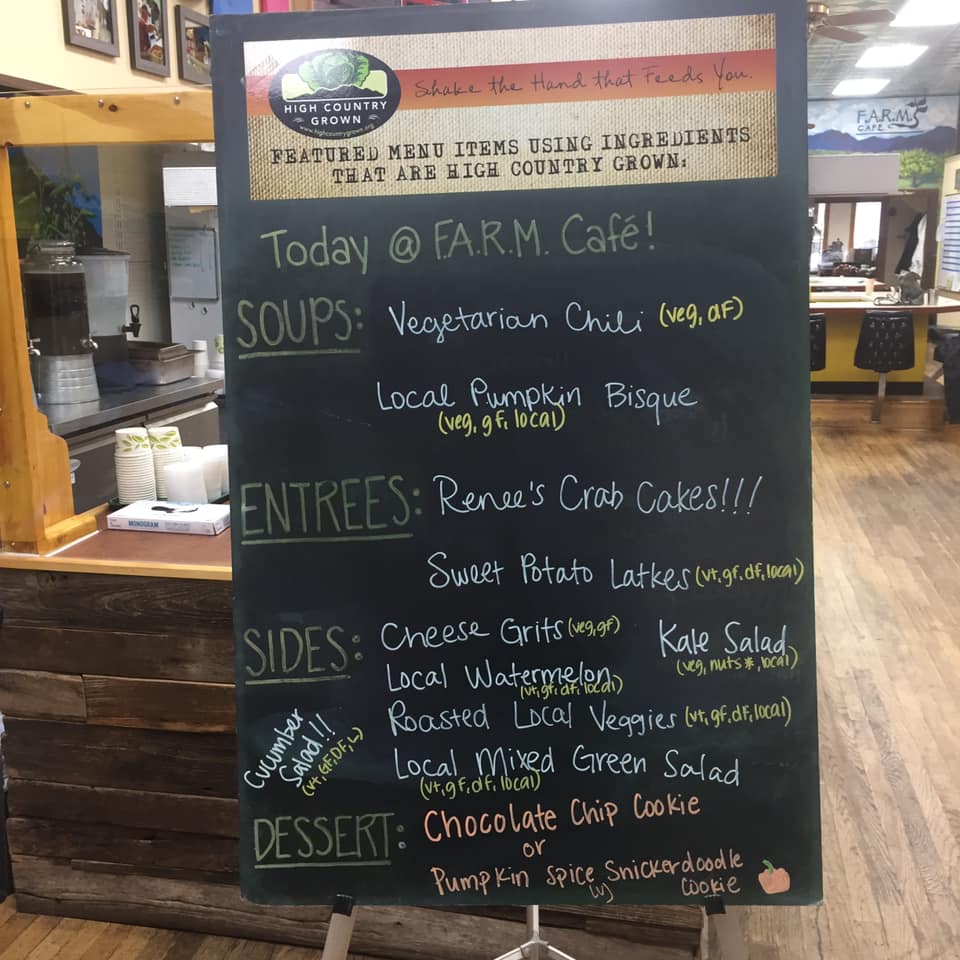 HIGH COUNTRY
GROWN
www.highcountrygrown.org
Shake the Hand that Feeds You.
FEATURED MENU ITEMS USING INGREDIENTS
THAT ARE HIGH COUNTRY GROWN:
F.A.R.M.
CAFE
Today @ F.A.R.M. Café!
SOUPS: Vegetarian Chili (veg, df)
Local Pumpkin Bisque
(veg, gf, local)
ENTREES: Renee's Crab Cakes!!!
Sweet Potato Latkes (vt, gf, df, local)
SIDES: Cheese Grits (veg, gf)
Kale Salad
(veg, nuts*, local)
Local Watermelon
(vt, gf, df, local)
Roasted Local Veggies (vt, gf, df, local)
Cucumber
Salad!!
(vt, GF, DF, L)
Local Mixed Green Salad
(vt, gf, df, local)
DESSERT: Chocolate Chip Cookie
or
Pumpkin Spice Snickerdoodle
Cookie
MONOGRAM